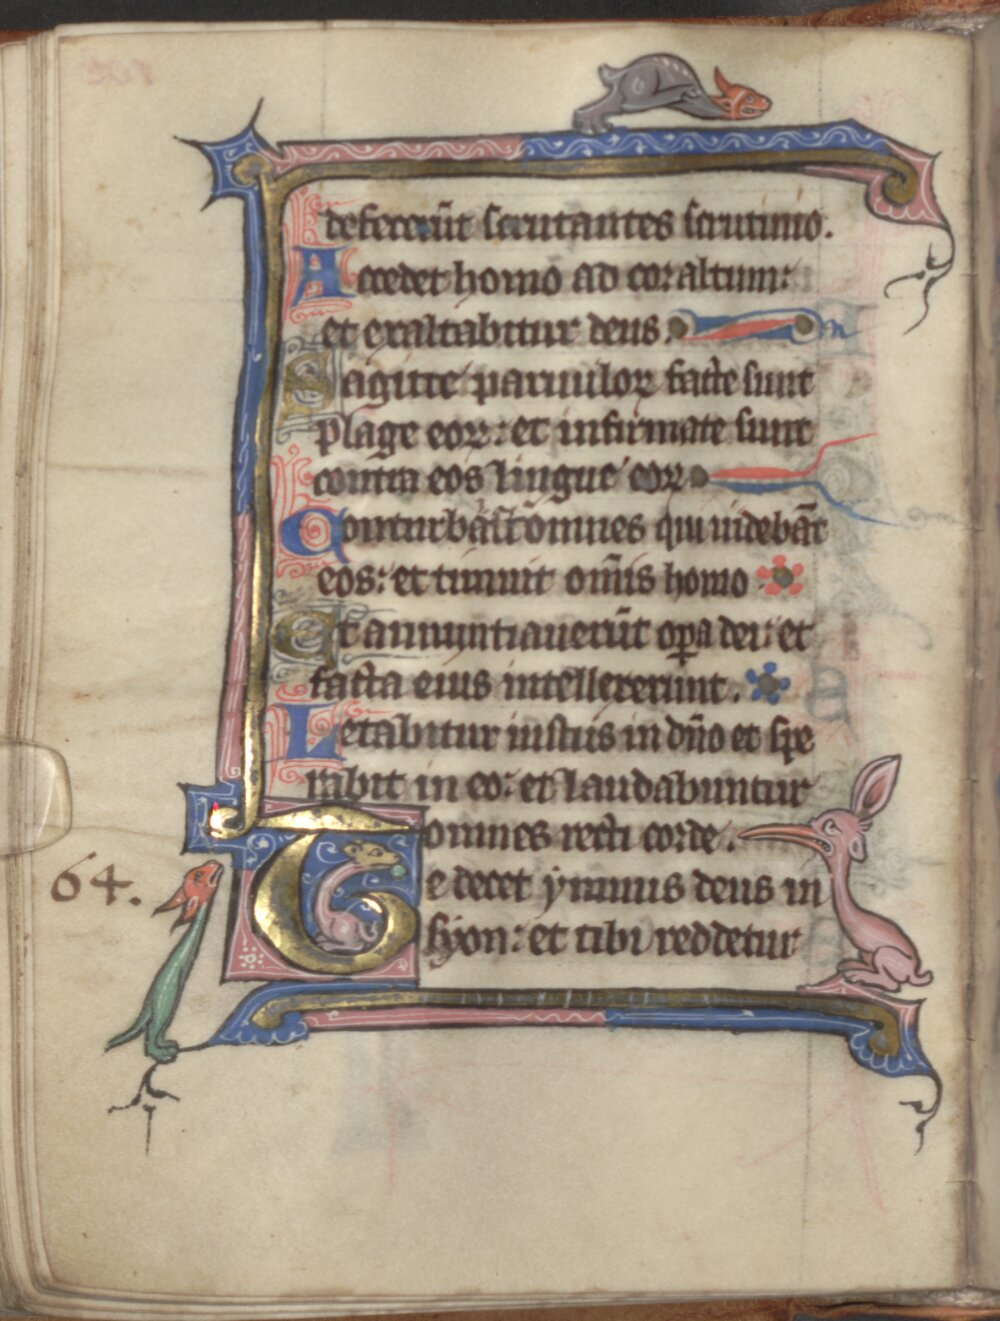 defecerūt scrutantes scrutinio.
Accedet homo ad cor altum:
et exaltabitur deus.
Sagitte paruuloꝝ facte sunt
plage eoꝝ: et infirmate sunt
contra eos lingue eoꝝ
Conturbati st̄ omnes qui uidebāt
eos: et timuit om̄is homo
Et annuntiauerūt opa dei: et
facta eius intellexerunt.
Letabitur iustus in dn̄o et spe
rabit in eo: et laudabuntur
omnes recti corde.
64.
Te decet ymnus deus in
syon: et tibi reddetur